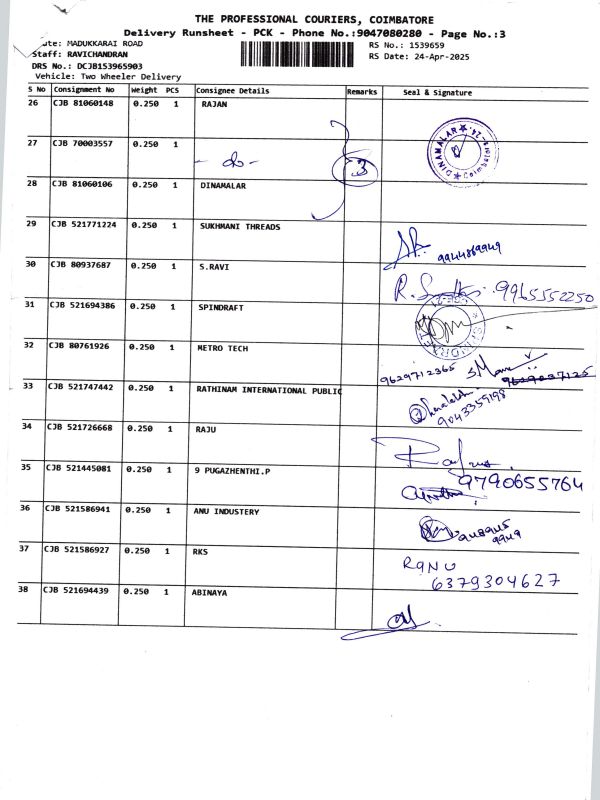 THE PROFESSIONAL COURIERS, COIMBATORE
Delivery Runsheet - PCK - Phone No.:9047080280 - Page No.:3
ute: MADUKKARAI ROAD
RS No.: 1539659
Staff: RAVICHANDRAN
RS Date: 24-Apr-2025
DRS No.: DCJB153965903
Vehicle: Two Wheeler Delivery
S No Consignment No Weight PCS Consignee Details Remarks Seal & Signature
26 CJB 81060148 0.250 1 RAJAN
27 CJB 70003557 0.250 1 - do - 3
DINAMALAR Coimbatore
28 CJB 81060106 0.250 1 DINAMALAR
29 CJB 521771224 0.250 1 SUKHMANI THREADS
9944869949
30 CJB 80937687 0.250 1 S.RAVI
9965552250
31 CJB 521694386 0.250 1 SPINDRAFT
32 CJB 80761926 0.250 1 METRO TECH
9629712365
33 CJB 521747442 0.250 1 RATHINAM INTERNATIONAL PUBLIC
9043359198
34 CJB 521726668 0.250 1 RAJU
35 CJB 521445081 0.250 1 9 PUGAZHENTHI.P
9790655764
36 CJB 521586941 0.250 1 ANU INDUSTERY
37 CJB 521586927 0.250 1 RKS
RANU
6379304627
38 CJB 521694439 0.250 1 ABINAYA